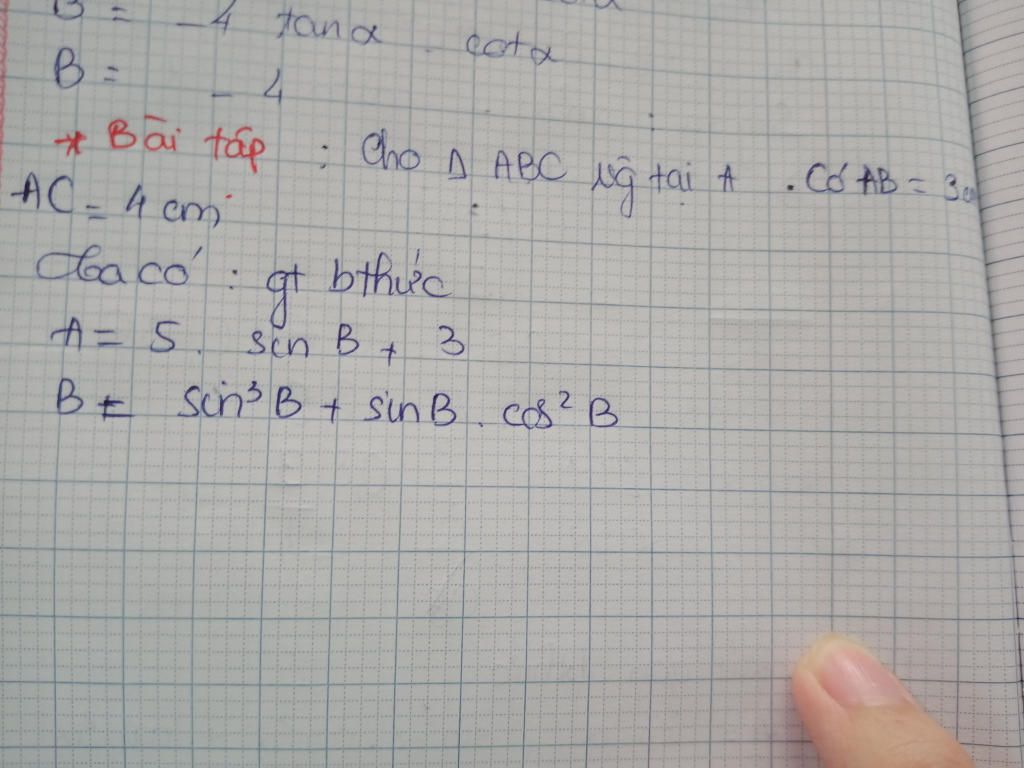 B = -4 tanα . cotα
B = -4
* Bài tập : Cho Δ ABC vg tại A . Có AB = 3cm
AC = 4 cm
có : gt bthức
A = 5. sin B + 3
B = sin³B + sinB . cos² B